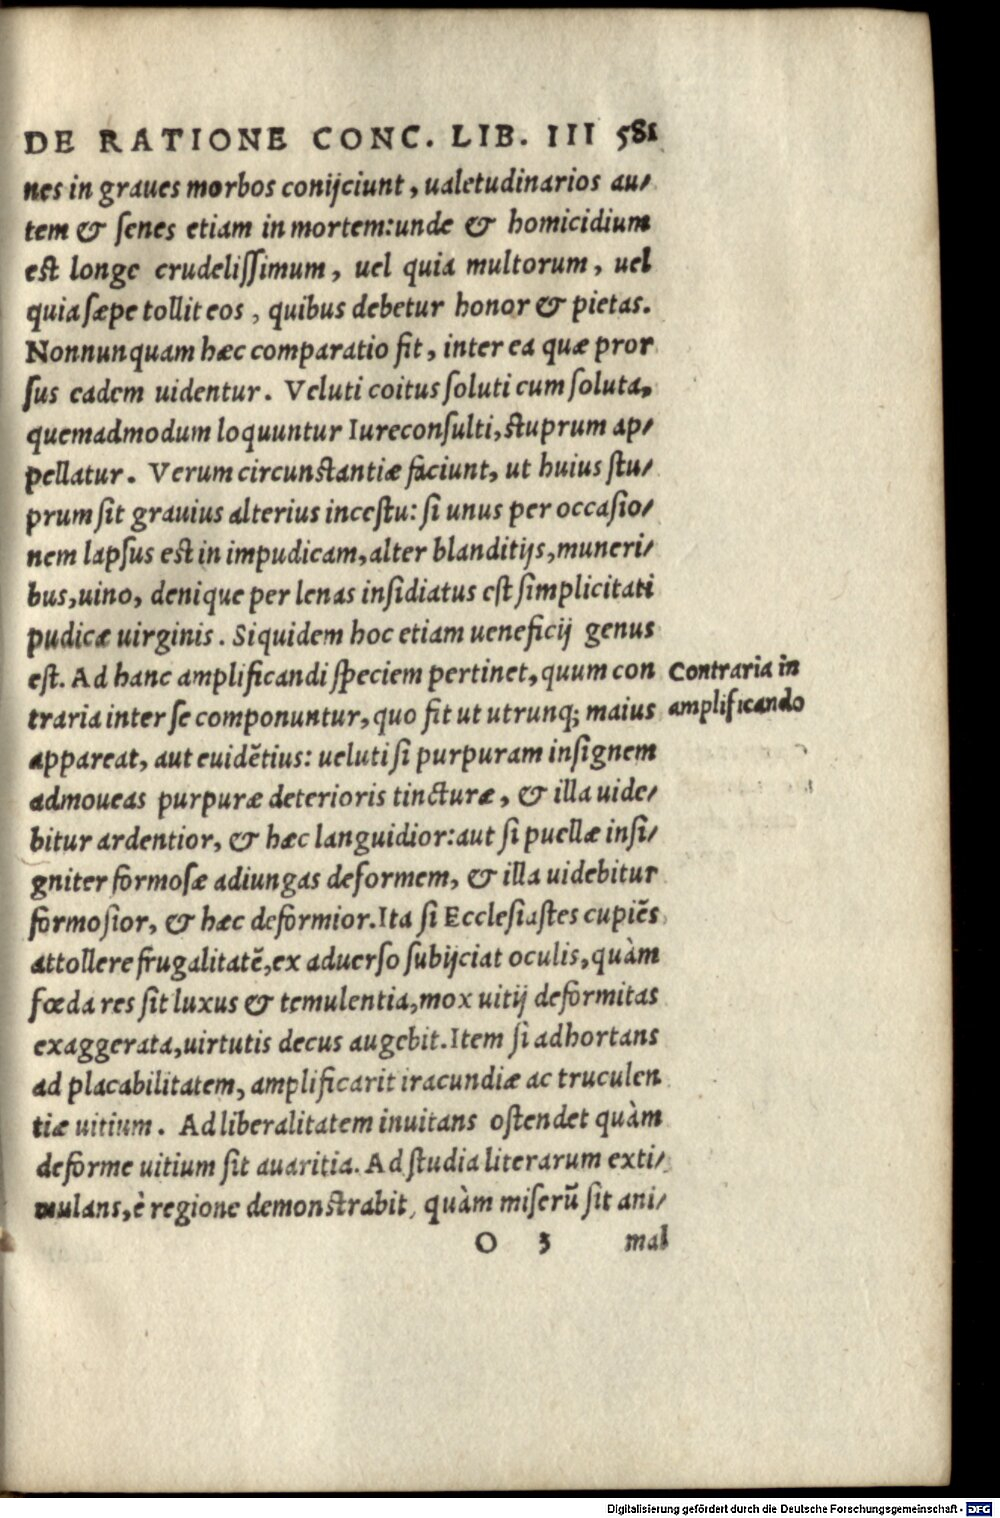 DE RATIONE CONC. LIB. III 581
nes in graues morbos conijciunt, ualetudinarios au/
tem & ſenes etiam in mortem:unde & homicidium
eſt longe crudeliſſimum, uel quia multorum, uel
quia ſæpe tollit eos, quibus debetur honor & pietas.
Nonnunquam hæc comparatio fit, inter ea quæ pror
ſus eadem uidentur. Veluti coitus ſoluti cum ſoluta,
quemadmodum loquuntur Iureconſulti, ſtuprum ap/
pellatur. Verum circunſtantiæ faciunt, ut huius ſtu/
prum ſit grauius alterius inceſtu: ſi unus per occaſio/
nem lapſus eſt in impudicam, alter blanditijs, muneri/
bus, uino, denique per lenas inſidiatus eſt ſimplicitati
pudicæ uirginis. Siquidem hoc etiam ueneficij genus
eſt. Ad hanc amplificandi ſpeciem pertinet, quum con
Contraria in
traria inter ſe componuntur, quo fit ut utrunq; maius
amplificando
appareat, aut euidẽtius: ueluti ſi purpuram inſignem
admoueas purpuræ deterioris tincturæ, & illa uide/
bitur ardentior, & hæc languidior: aut ſi puellæ inſi/
gniter formoſæ adiungas deformem, & illa uidebitur
formoſior, & hæc deformior. Ita ſi Eccleſiaſtes cupiẽs
attollere frugalitatẽ, ex aduerſo ſubijciat oculis, quàm
fœda res ſit luxus & temulentia, mox uitij deformitas
exaggerata, uirtutis decus augebit. Item ſi adhortans
ad placabilitatem, amplificarit iracundiæ ac truculen
tiæ uitium. Ad liberalitatem inuitans oſtendet quàm
deforme uitium ſit auaritia. Ad ſtudia literarum exti/
mulans, è regione demonſtrabit, quàm miſerũ ſit ani/
O 3 mal
Digitalisierung gefördert durch die Deutsche Forschungsgemeinschaft - DFG